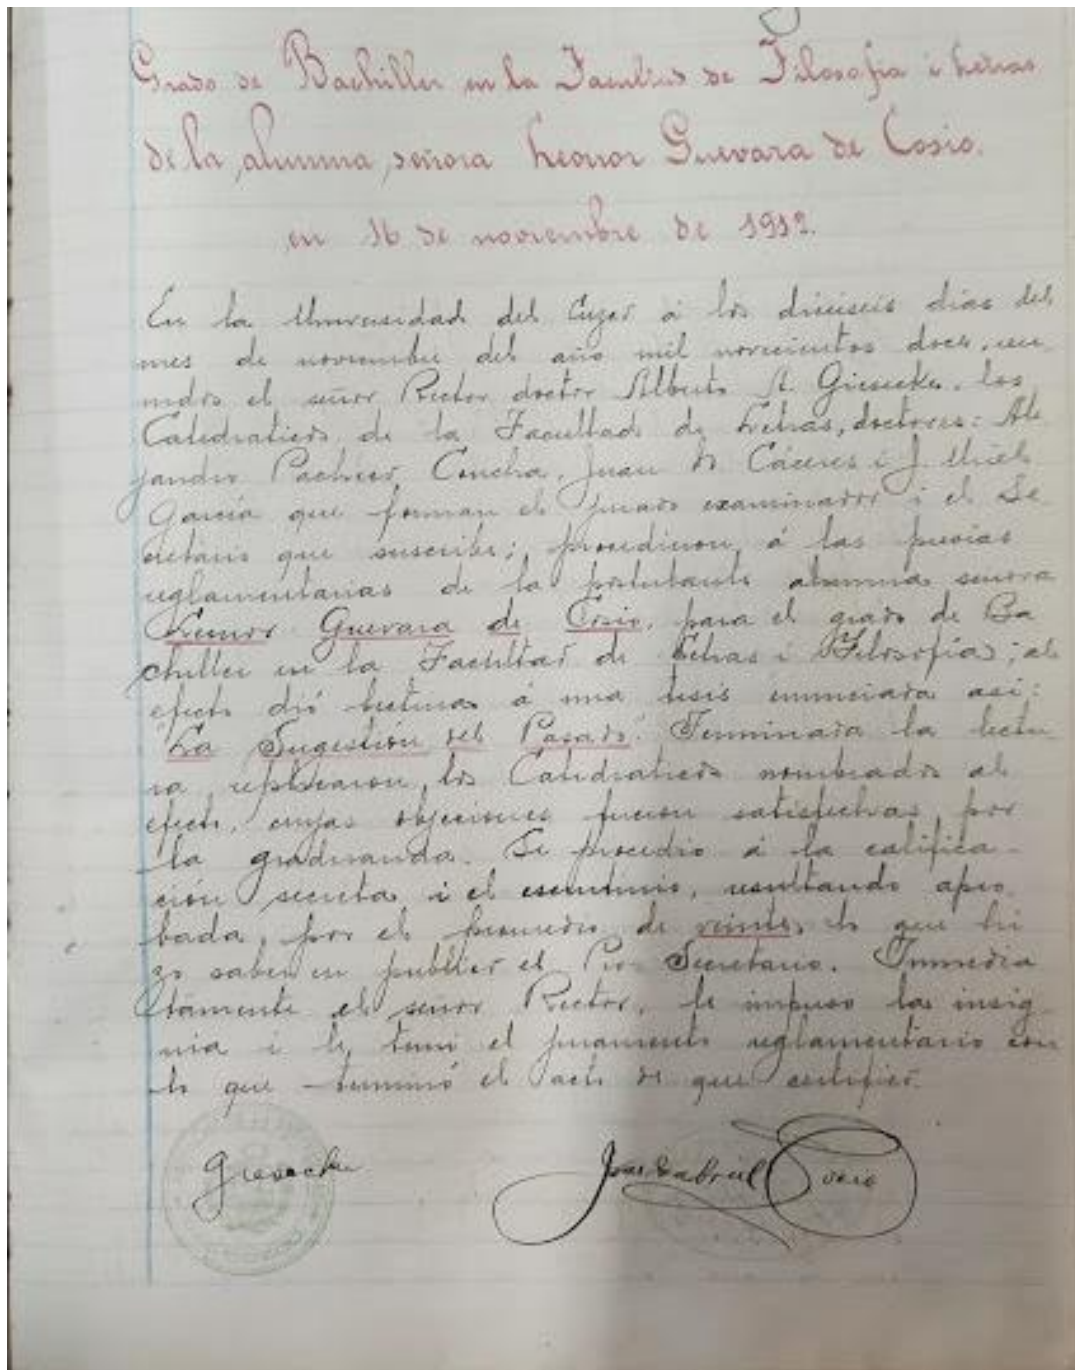 Grado de Bachiller en la Facultad de Filosofia i Letras
de la alumna señora Leonor Guevara de Cosio.
en 16 de noviembre de 1912.
En la Universidad del Cuzco á los dieciseis dias del
mes de noviembre del año mil novecientos doce, reu
nidos el señor Rector doctor Alberto A. Giesecke, los
Catedraticos de la Facultad de Letras, doctores: Ale
jandro Pacheco Concha, Juan D. Cáceres i J. Uriel
García que forman el jurado examinador i el Se
cretario que suscribe; procedieron á las previas
reglamentarias de la postulante alumna señora
Leonor Guevara de Cosio, para el grado de Ba
chiller en la Facultad de Letras i Filosofía; al
efecto dió lectura á una tesis enunciada asi:
"La Sugestión del Pasado". Terminada la lectu
ra replicaron los Catedraticos nombrados al
efecto, cuyas objeciones fueron satisfechas por
la graduanda. Se procedio á la califica-
ción secreta i el escrutinio, resultando apro
bada, por el promedio de veinte, lo que hi
zo saber en publico el Pro-Secretario. Inmedia
tamente el señor Rector, le impuso la insig-
nia i le tomó el juramento reglamentario con
lo que terminó el acto de que certifico.
Giesecke José Gabriel Cosio